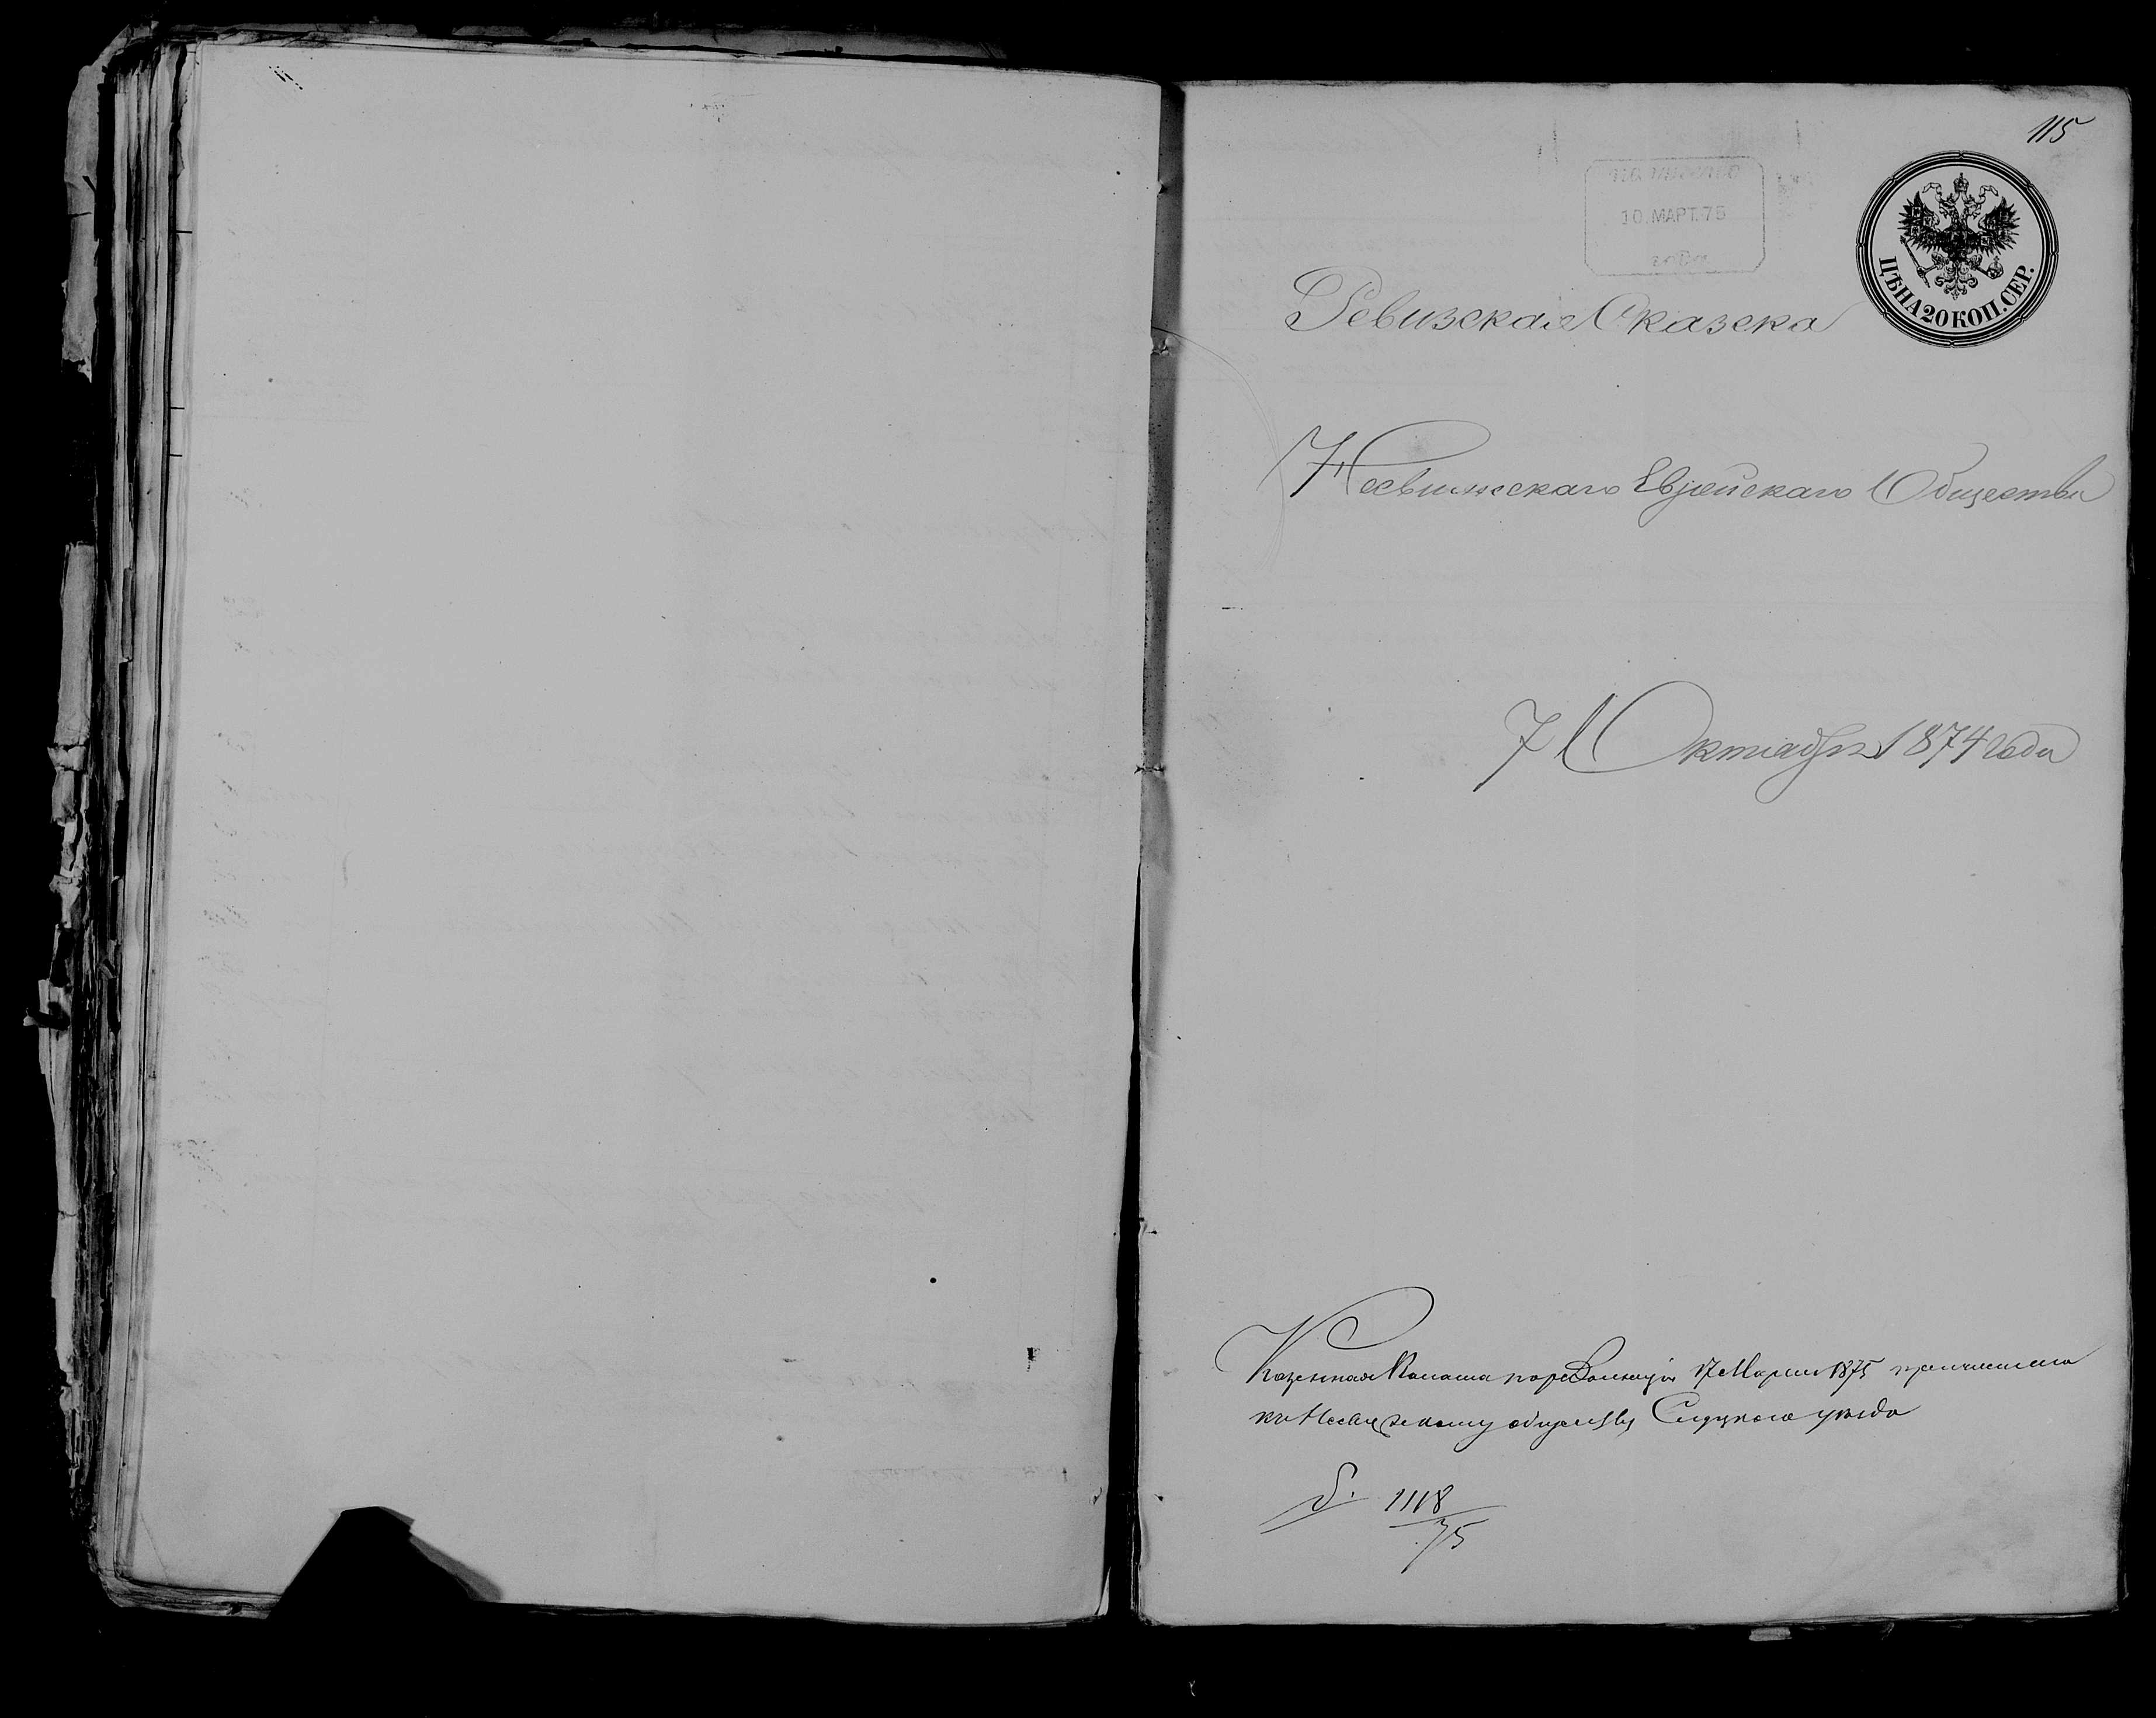 115
10.МАРТ.75
ЦѢНА 20 КОП. СЕР.
Ревизская Сказска
Несвижскаго Еврейскаго Общества
7 Октября 1874 года
Казенная Палата по резолюціи 17 Марта 1875 причислила
къ Несвижскому обществу Слуцкаго уѣзда
1118
75